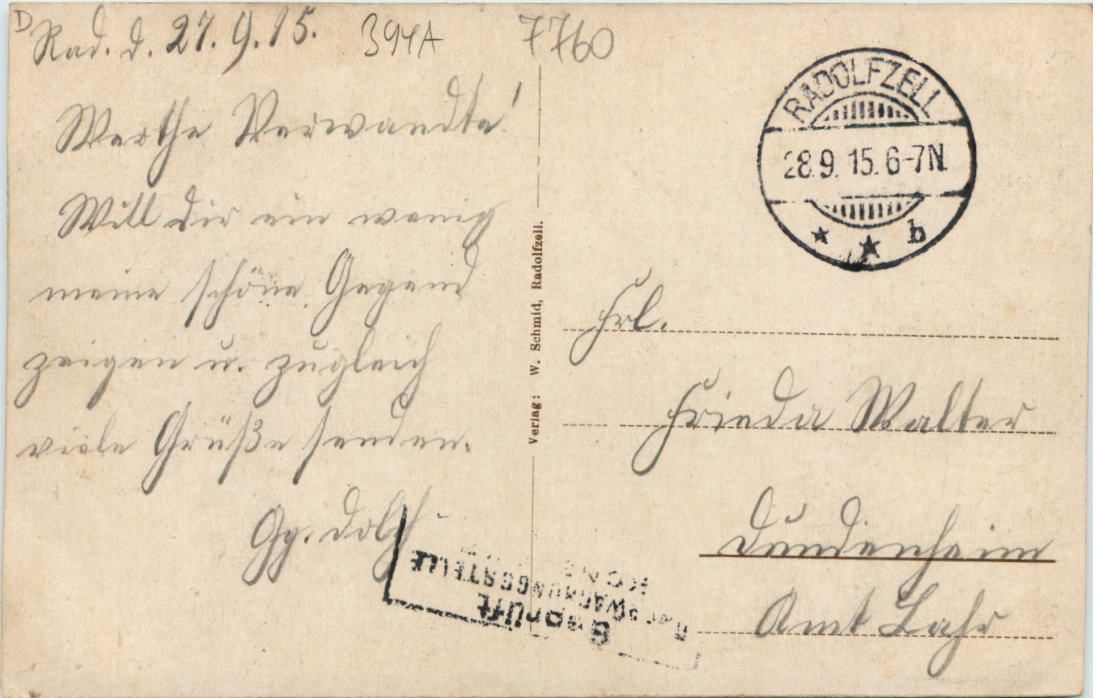 D
Rad. d. 27.9.15. 394A 7760
Werthe Verwandte!
Will Dir ein wenig
meine schöne Gegend
zeigen u. zugleich
viele Grüße senden.
Gg. Dolch
Verlag: W. Schmid, Radolfzell.
RADOLFZELL
28.9.15.6-7N.
* * b
Frl.
Frieda Walter
Dundenheim
Amt Lahr
Geprüft
ÜBERWACHUNGSSTELLE